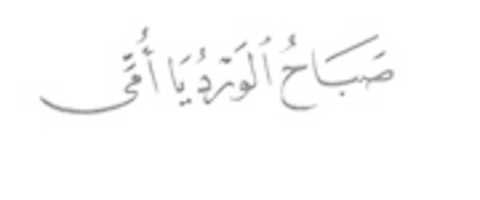 صَبَاحُ ٱلوَرْدُ يَا أُمَّى